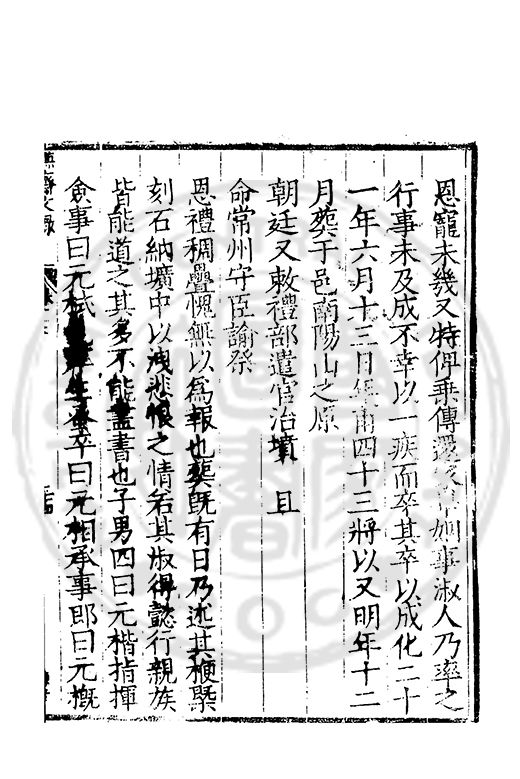 恩寵未幾又特俾乗傳還家如事淑人乃率之
行事未及成不幸以一疾而卒其卒以成化二十
一年六月十三日年甫四十三將以又明年十二
月葬于邑南陽山之原
朝廷又敕禮部遣官治墳且
命常州守臣諭祭
恩禮稠疊愧無以為報也葬既有日乃述其梗槩
刻石納壙中以洩悲恨之情若其淑得懿行親族
皆能道之其多不能盡書也子男四曰元楷指揮
僉事曰元栻卒曰元相承事郎曰元概